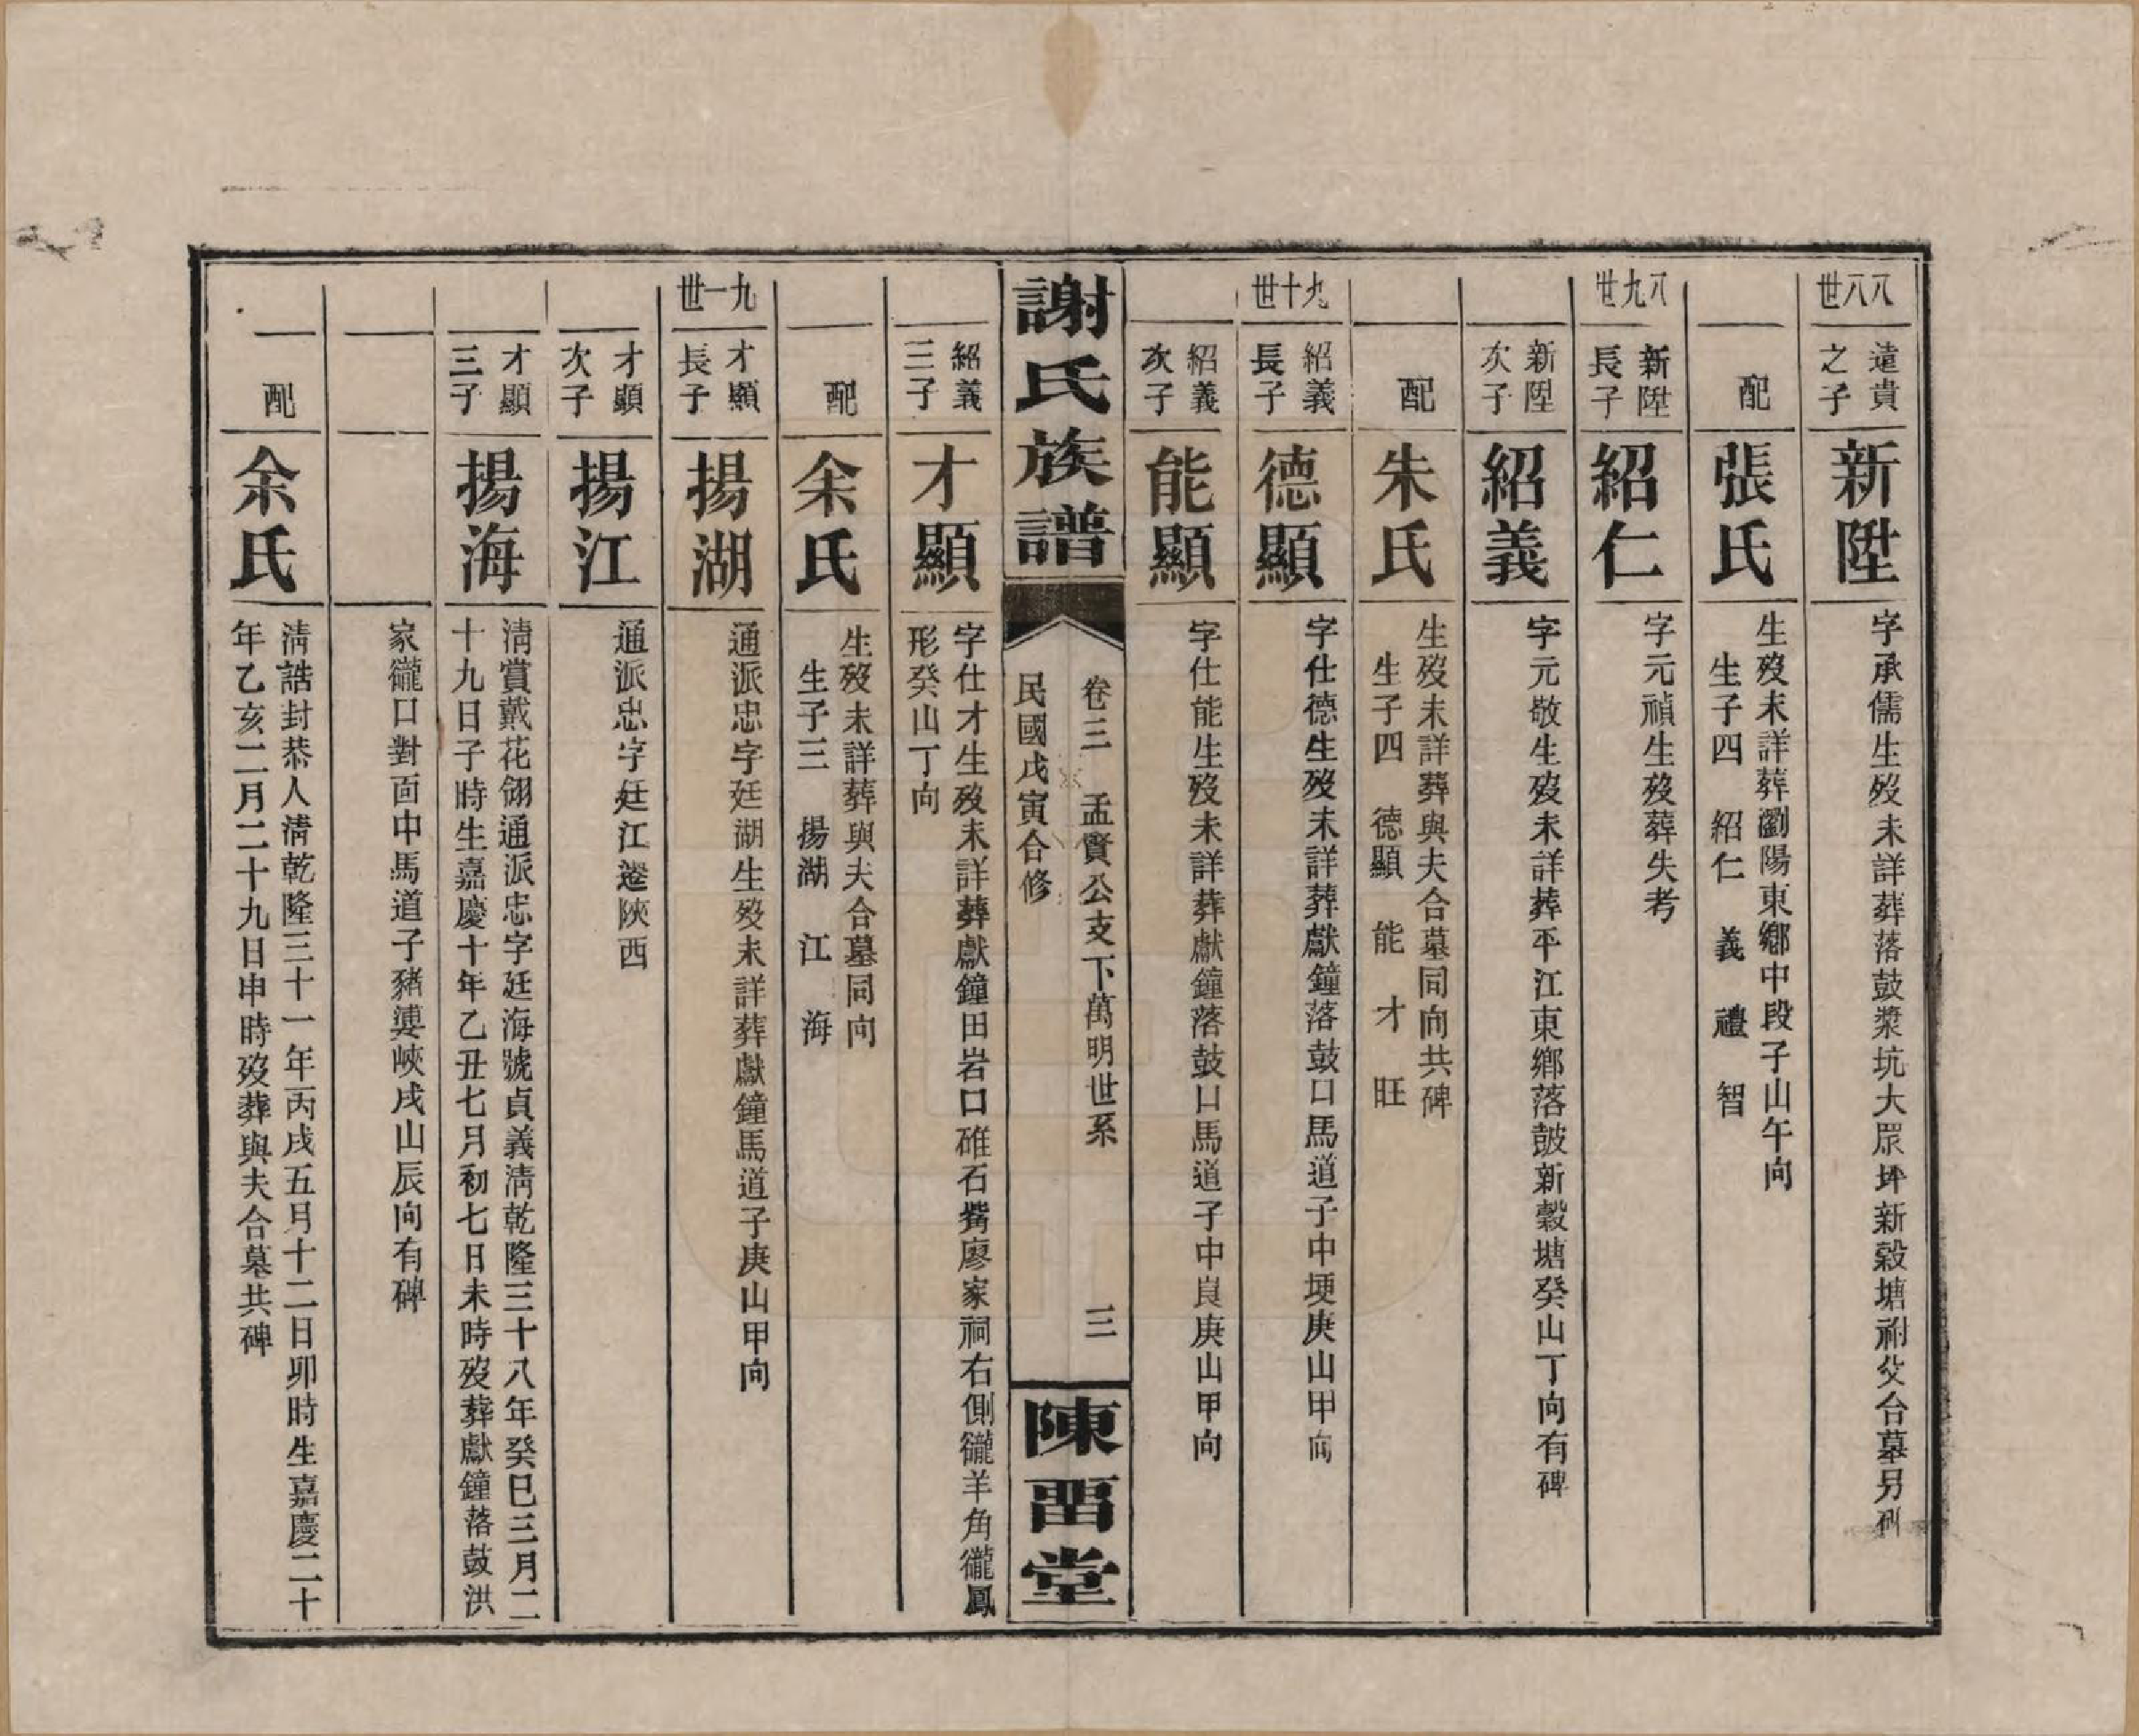 八八世
遠貴
之子
新陞
字承儒生歿未詳葬落鼓漿坑大眾坪新穀塘祔父合墓另碑
配
張氏
生歿未詳葬瀏陽東鄉中段子山午向
生子四 紹仁 義 禮 智
八九世
新陞
長子
紹仁
字元禎生歿葬失考
新陞
次子
紹義
字元敬生歿未詳葬平江東鄉落皷新穀塘癸山丁向有碑
配
朱氏
生歿未詳葬與夫合墓同向共碑
生子四 德顯 能 才 旺
九十世
紹義
長子
德顯
字仕德生歿未詳葬獻鐘落鼓口馬道子中埂庚山甲向
紹義
次子
能顯
字仕能生歿未詳葬獻鐘落鼓口馬道子中崀庚山甲向
謝氏族譜
卷三 孟賢公支下萬明世系 三
民國戊寅合修
陳畱堂
紹義
三子
才顯
字仕才生歿未詳葬獻鐘田岩口碓石觜廖家祠右側巄羊角巄鳳
形癸山丁向
配
余氏
生歿未詳葬與夫合墓同向
生子三 揚湖 江 海
九一世
才顯
長子
揚湖
通派忠字廷湖生歿未詳葬獻鐘馬道子庚山甲向
才顯
次子
揚江
通派忠字廷江遷陝西
才顯
三子
揚海
清賞戴花翎通派忠字廷海號貞義清乾隆三十八年癸巳三月二
十九日子時生嘉慶十年乙丑七月初七日未時歿葬獻鐘落鼓洪
家巄口對面中馬道子豬婆峽戌山辰向有碑
配
余氏
清誥封恭人清乾隆三十一年丙戌五月十二日卯時生嘉慶二十
年乙亥二月二十九日申時歿葬與夫合墓共碑